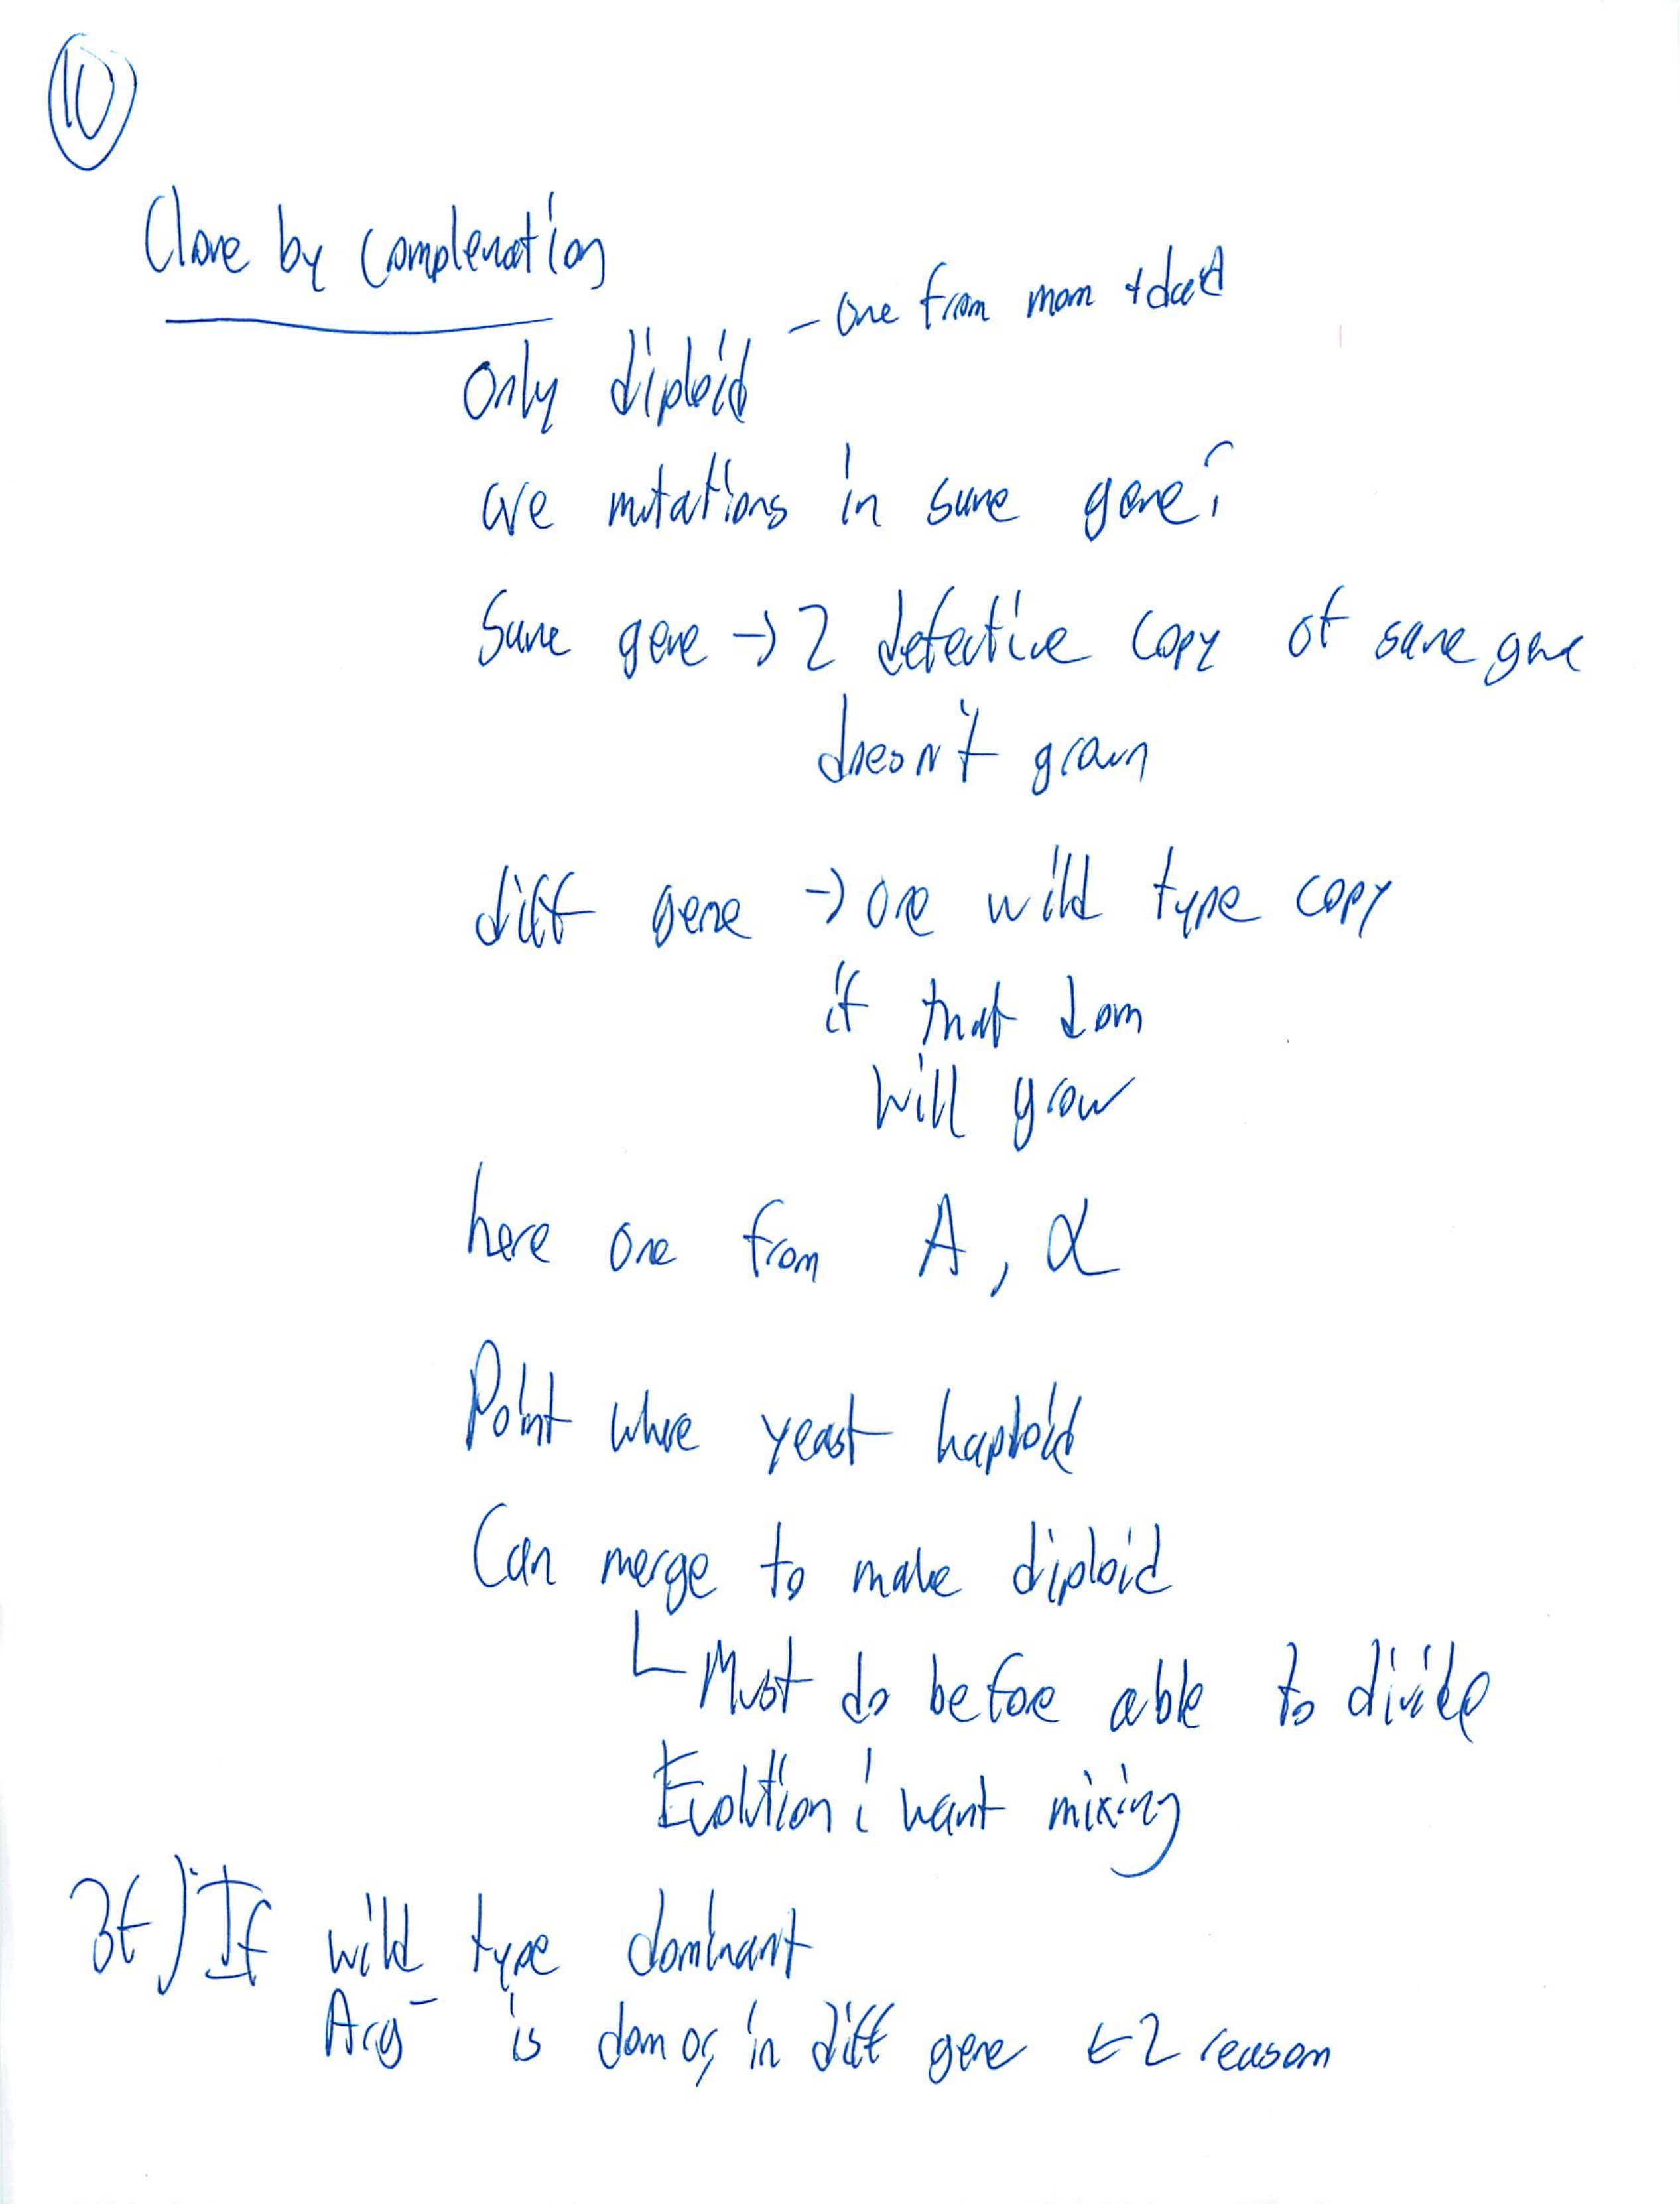 10
Clone by complenation
only diploid - one from mom + dad
are mutations in same gene?
Same gene → 2 defective copy of same gene
doesn't grown
diff gene → one wild type copy
if that dom
will grow
here one from A, α
Point where yeast haploid
Can merge to make diploid
Must do before able to divide
Evolution: want mixing
3f) If wild type dominant
Arg⁻ is dom or in diff gene ← 2 reason